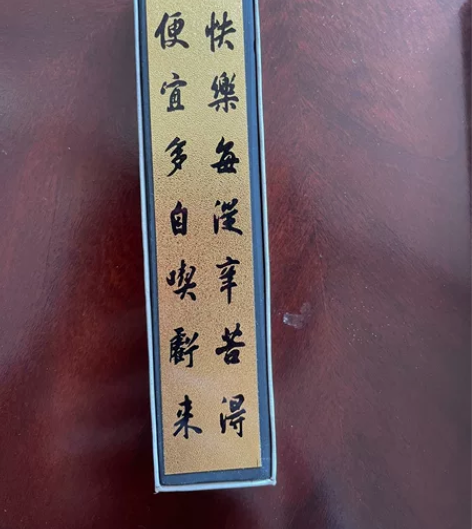 快樂每從辛苦得
便宜多自喫虧来